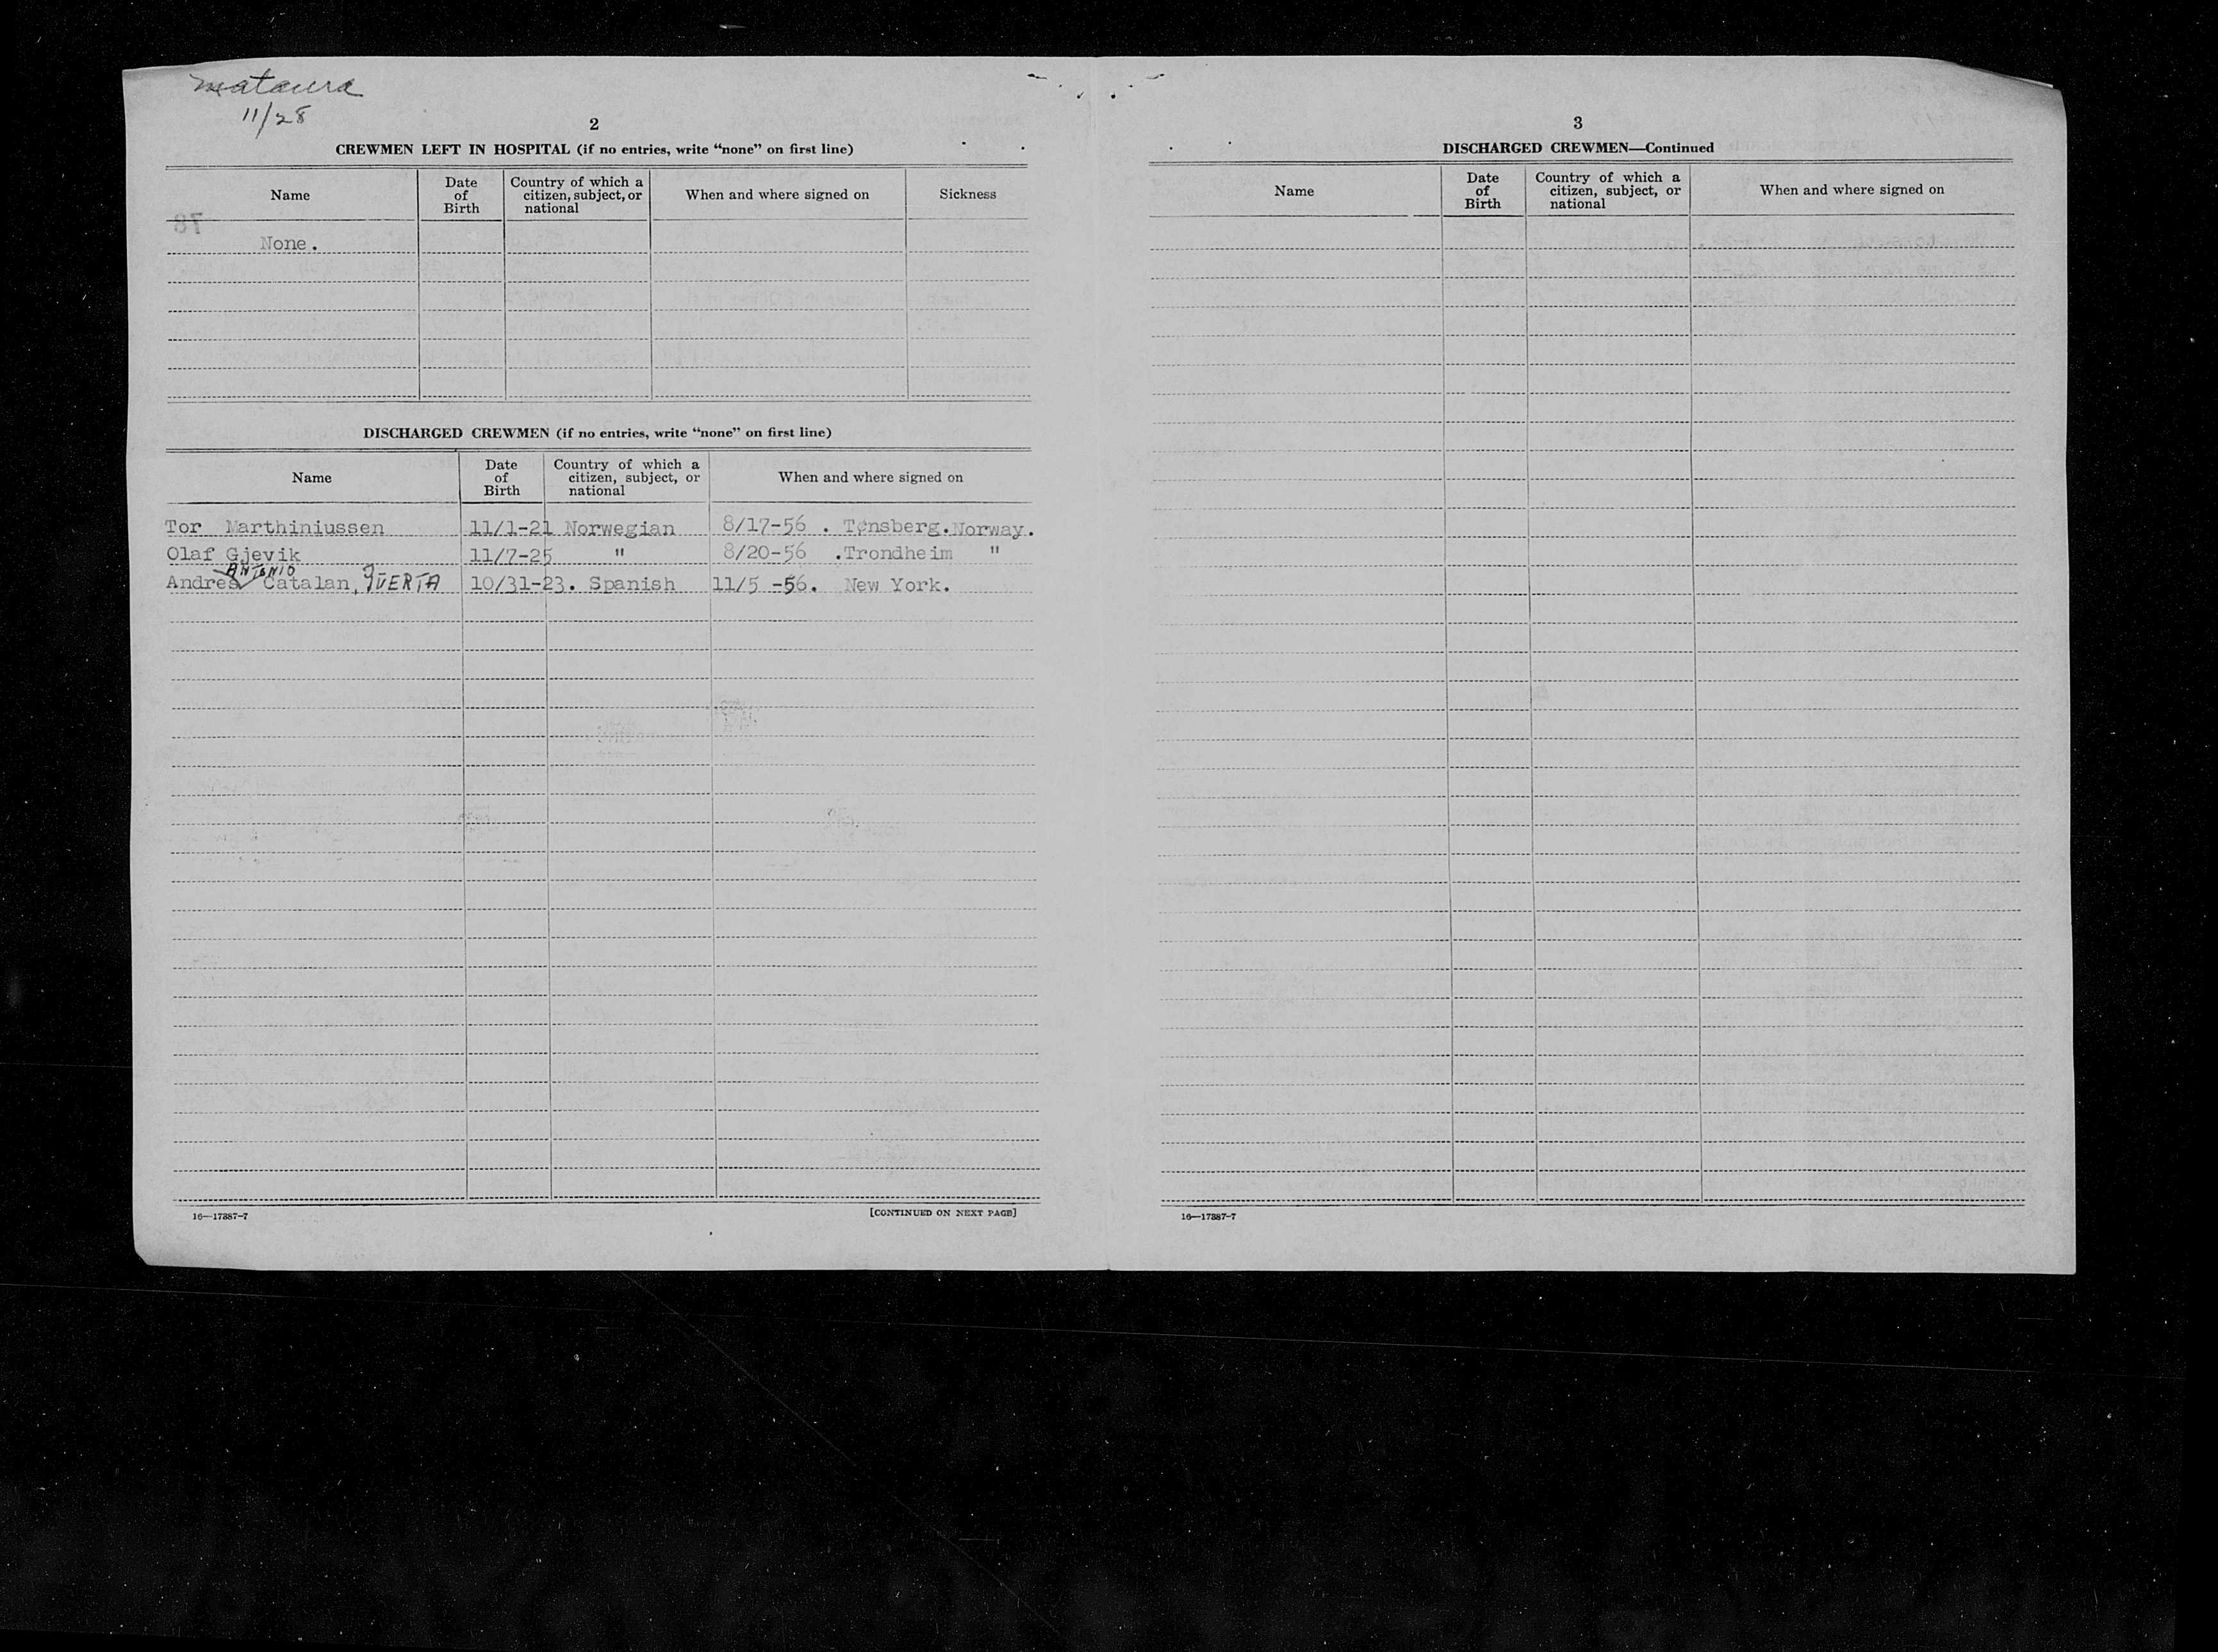 Mataura
11/28
2
CREWMEN LEFT IN HOSPITAL (if no entries, write “none” on first line)
Name Date of Birth Country of which a citizen, subject, or national When and where signed on Sickness
78
None.
DISCHARGED CREWMEN (if no entries, write “none” on first line)
Name Date of Birth Country of which a citizen, subject, or national When and where signed on
Tor Marthiniussen 11/1-21 Norwegian 8/17-56 . Tønsberg.Norway.
Olaf Gjevik 11/7-25 " 8/20-56 .Trondheim "
ANTONIO
Andres Catalan, GUERTA 10/31-23. Spanish 11/5 -56. New York.
16—17387-7 [CONTINUED ON NEXT PAGE]
3
DISCHARGED CREWMEN—Continued
Name Date of Birth Country of which a citizen, subject, or national When and where signed on
16—17387-7